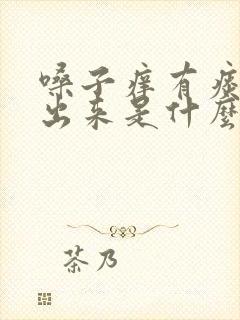 嗓子痒有痰
出来是什麽
茶乃